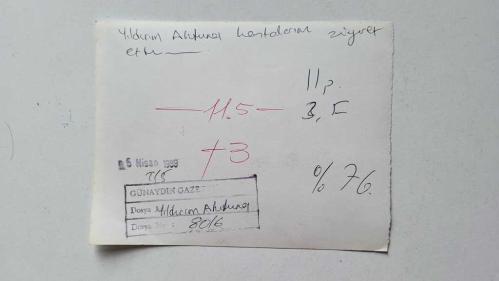 Yıldırım Akbulut hastalarını ziyaret
etti
11 p.
11.5
3, F
+3
5 Nisan 1989
% 76.
GÜNAYDIN GAZE
Dosya Yıldırım Akbulut
Dosya No : 8016